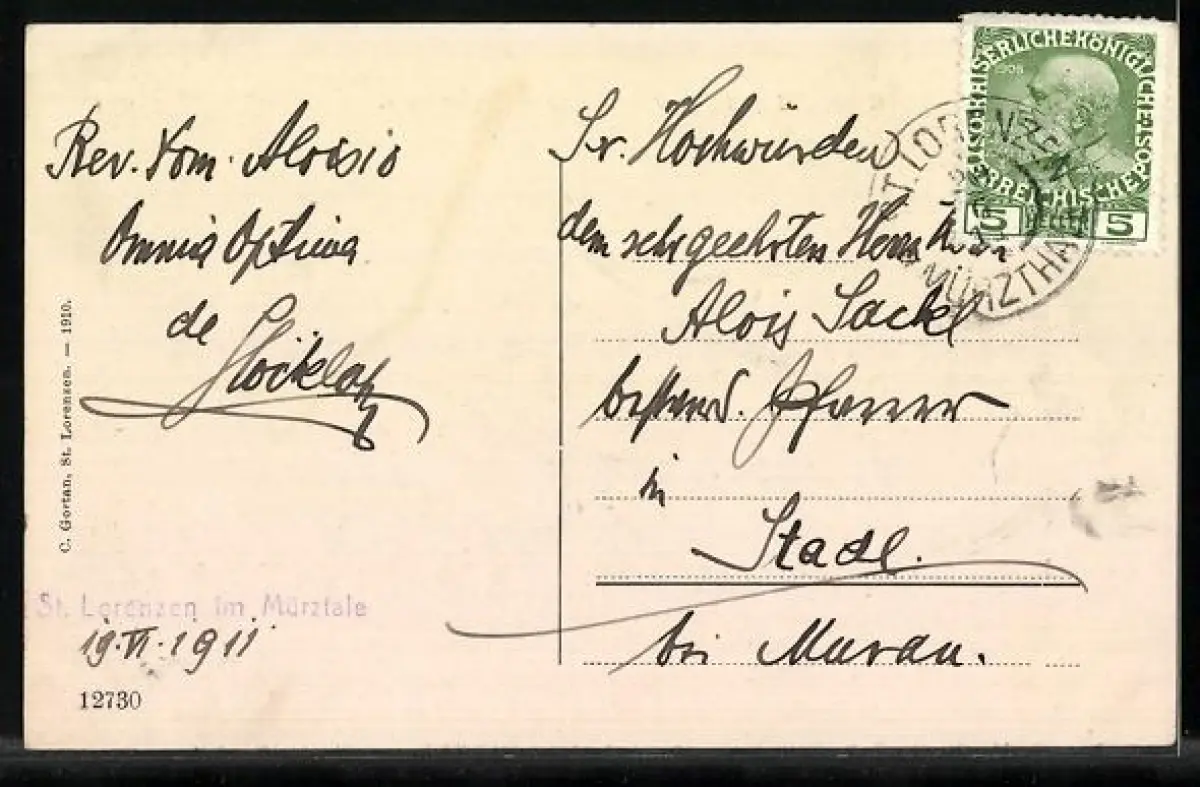 Rev. Dom. Aloisio
Omnia Optima
de
C. Gortan, St. Lorenzen. — 1910.
St. Lorenzen im Mürztale
19.VI.1911
12730
KAISERLICHE KÖNIGLICHE ÖSTERREICHISCHE POST
1908
5 5
ST. LORENZEN
MÜRZTHALE
Sr. Hochwürden
dem sehr geehrten Herrn Herrn
Alois Sackl
Pfarrer
in
Stadl.
bei Murau.